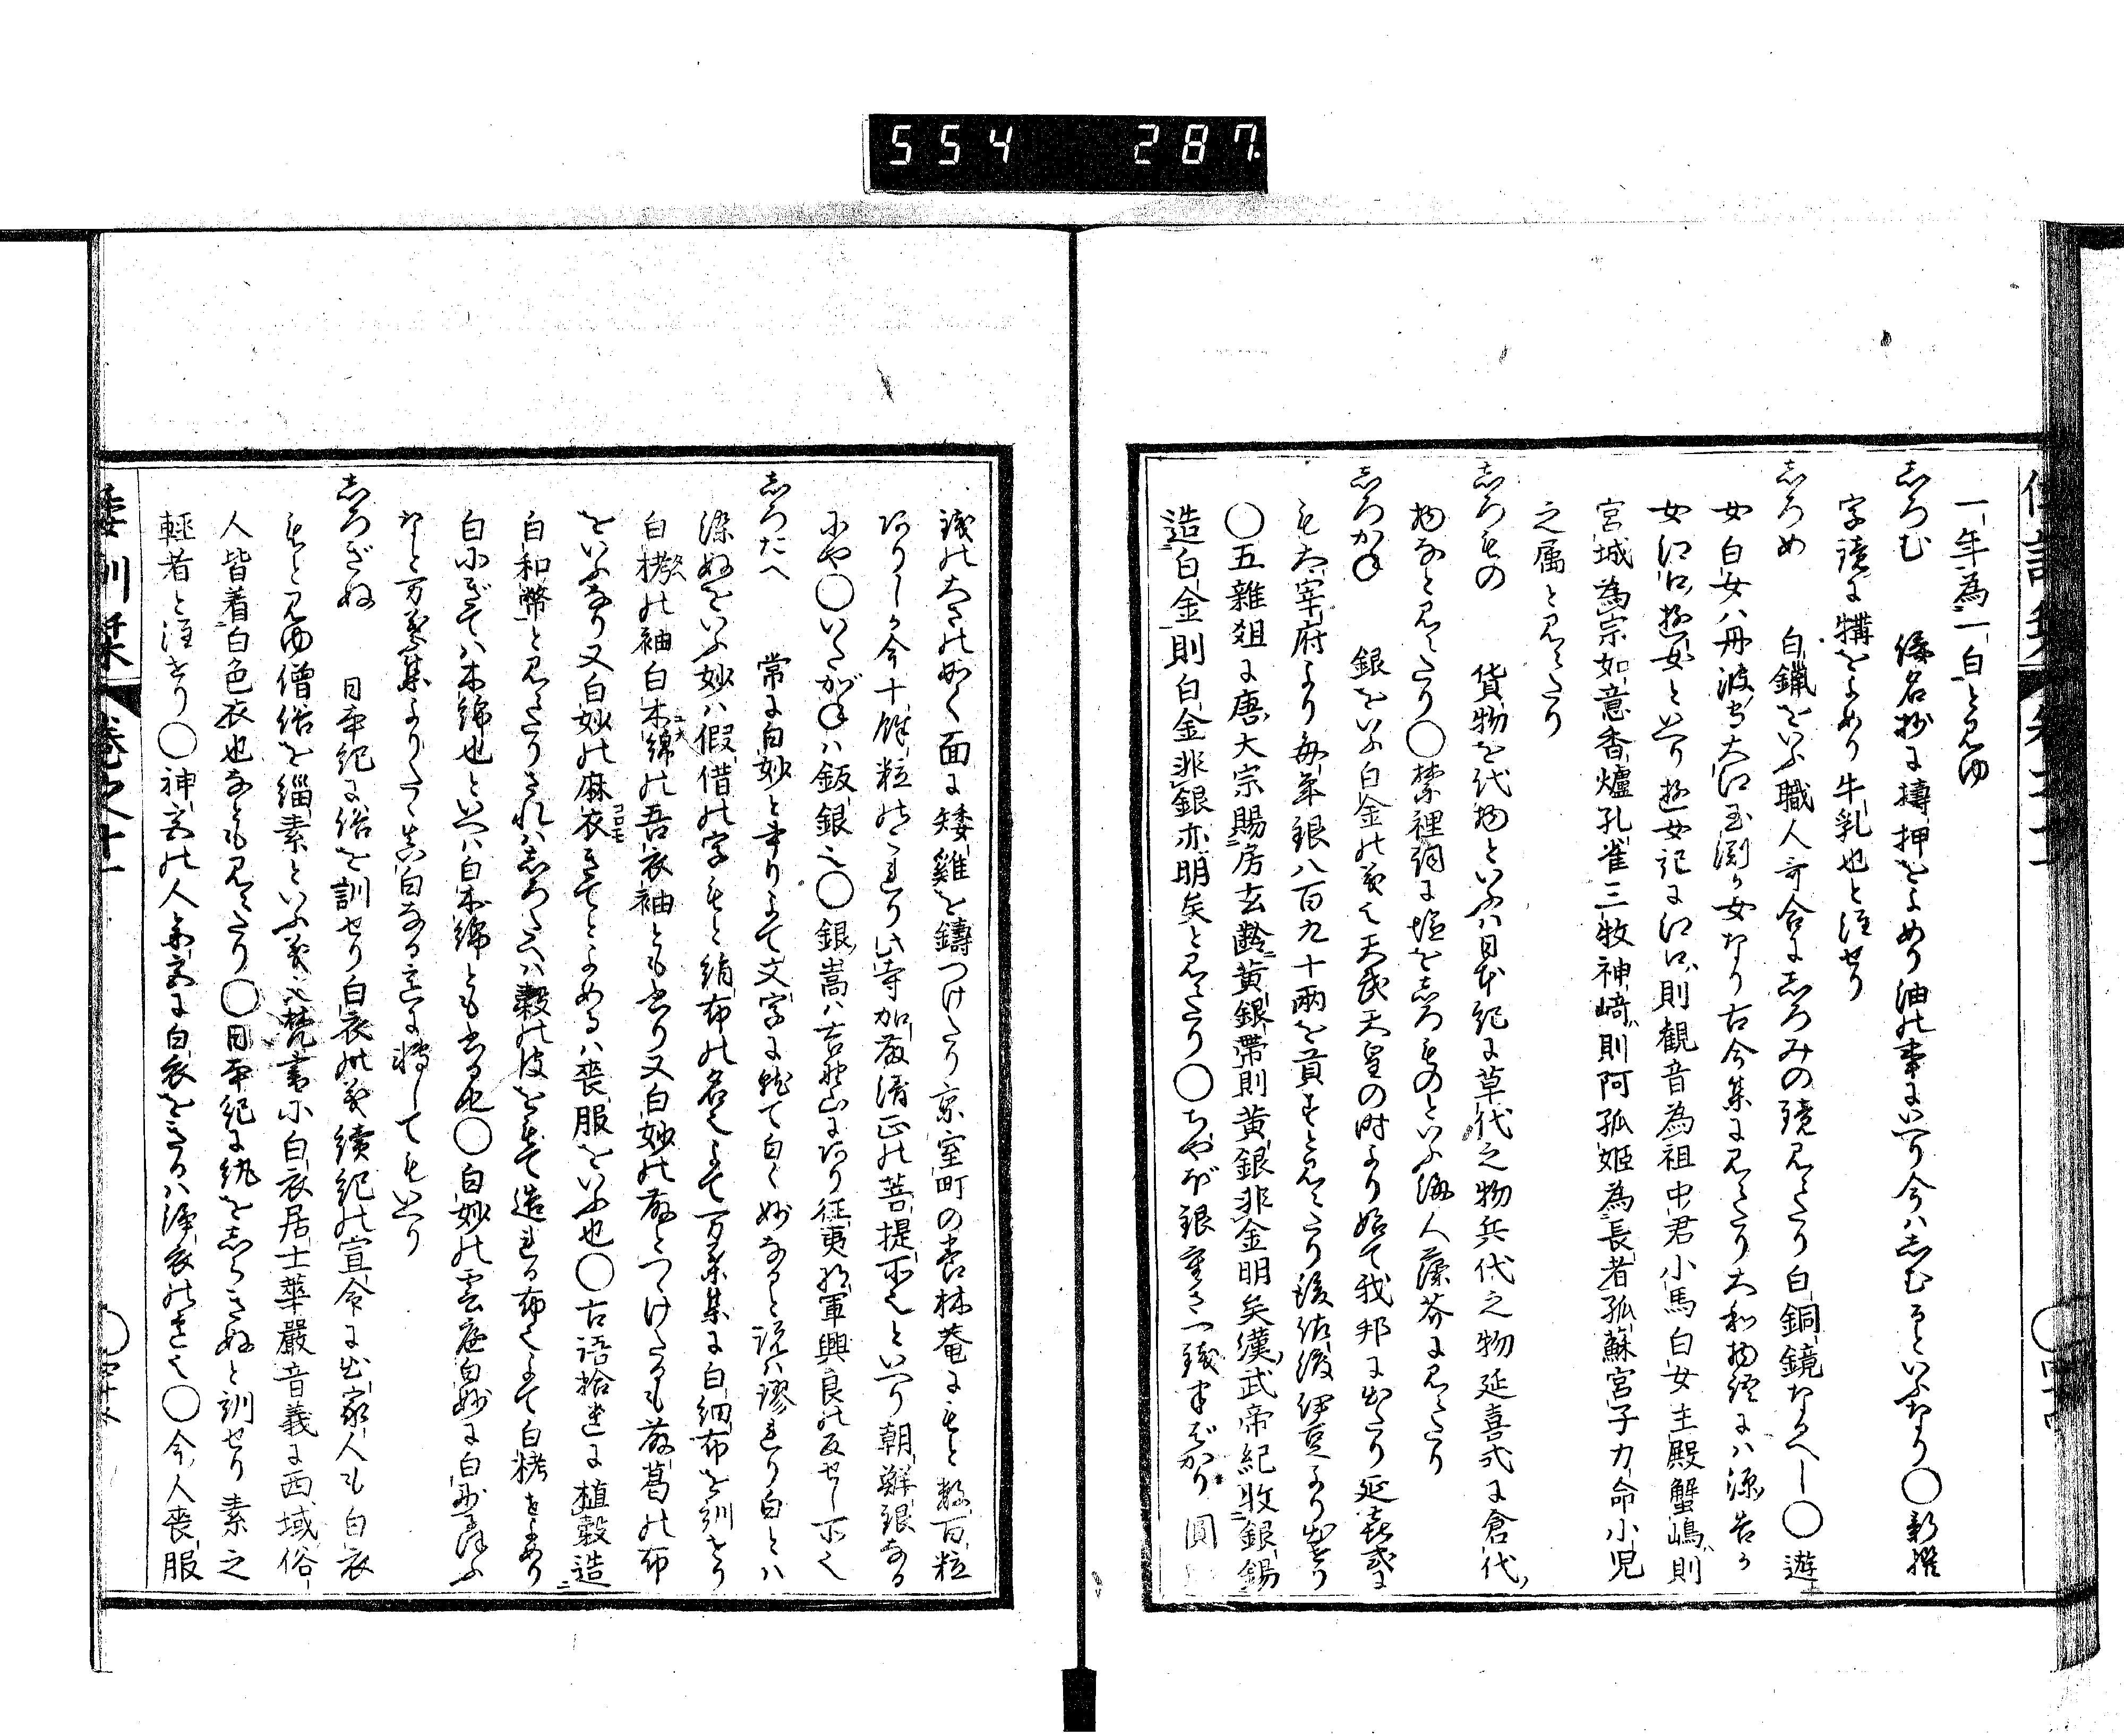 554 287
一年為一白と見ゆ
志ろむ 倭名抄に搏押をよめり油の事にいへり今ハ志むるといふなり〇新撰
字鏡に犓をよめり牛乳也と注せり
志ろめ 白鑞をいふ職人哥合に志ろみの鏡見えたり白銅鏡なるへし〇遊
女白女ハ丹波守大江玉淵か女なり古今集に見えたり大和物語にハ源告か
女江口遊女といへり遊女記に江口則観音為祖中君小馬白女主殿蟹嶋則
宮城為宗如意香爐孔雀三牧神﨑則阿孤姫為長者孤蘇宮子力命小児
之属と見えたり
志ろもの 貨物を代物といふハ日本紀に草代之物兵代之物延喜式に倉代
物なと見えたり〇禁裡詞に塩を志ろものといふ海人藻芥に見えたり
志ろかね 銀をいふ白金の義也天武天皇の時より始て我邦に出たり延喜式に
も太宰府より毎年銀八百九十両を貢すと見えたり後佐渡伊豆より出せり
〇五雜俎に唐大宗賜房玄齡黄銀帶則黄銀非金明矣漢武帝紀收銀錫
造白金則白金非銀亦明矣と見えたり〇ちやぼ銀重さ一銭半ばかり圓
銭の大さの如く面に矮雞を鑄つけたり京室町の養林菴にもと数百粒
ありしか今十餘粒のこれり此寺加藤清正の菩提所也といへり朝鮮銀なる
にや〇いたがねハ鈑銀也〇銀嵩ハ吉野山にあり征夷将軍興良の反せし所也
志ろたへ 常に白妙と書りよて文字に就て白く妙なると説ハ謬れり白とハ
染ぬをいふ妙ハ假借の字もと絹布の名也よて万葉集に白細布を訓せり
白栲の袖白木綿の吾衣袖とも書り又白妙の藤とつゝけたるも藤葛の布
をいふなり又白妙の麻衣きてとよめるハ喪服をいふ也〇古語拾遺に植穀造
白和幣と見えたりされハ志ろたへハ穀の皮をもて造れる布也よて白栲をよめり
白にぎてハ木綿也といへハ白木綿とも書る也〇白妙の雲庭白妙に白妙にほふ
なと万葉集よりたゝ真白なる意に轉してもいへり
志ろぎぬ 日本紀に俗を訓せり白衣の義續紀の宣命に出家人も白衣
もと見ゆ僧俗を緇素といふ義也梵書に白衣居士華嚴音義に西域俗
人皆着白色衣也なとも見えたり〇日本紀に紈を志らきぬと訓せり素之
輕者と注せり〇神宮の人參宮に白衣をきるハ浄衣の意也〇今人喪服
倭訓栞 巻之十一